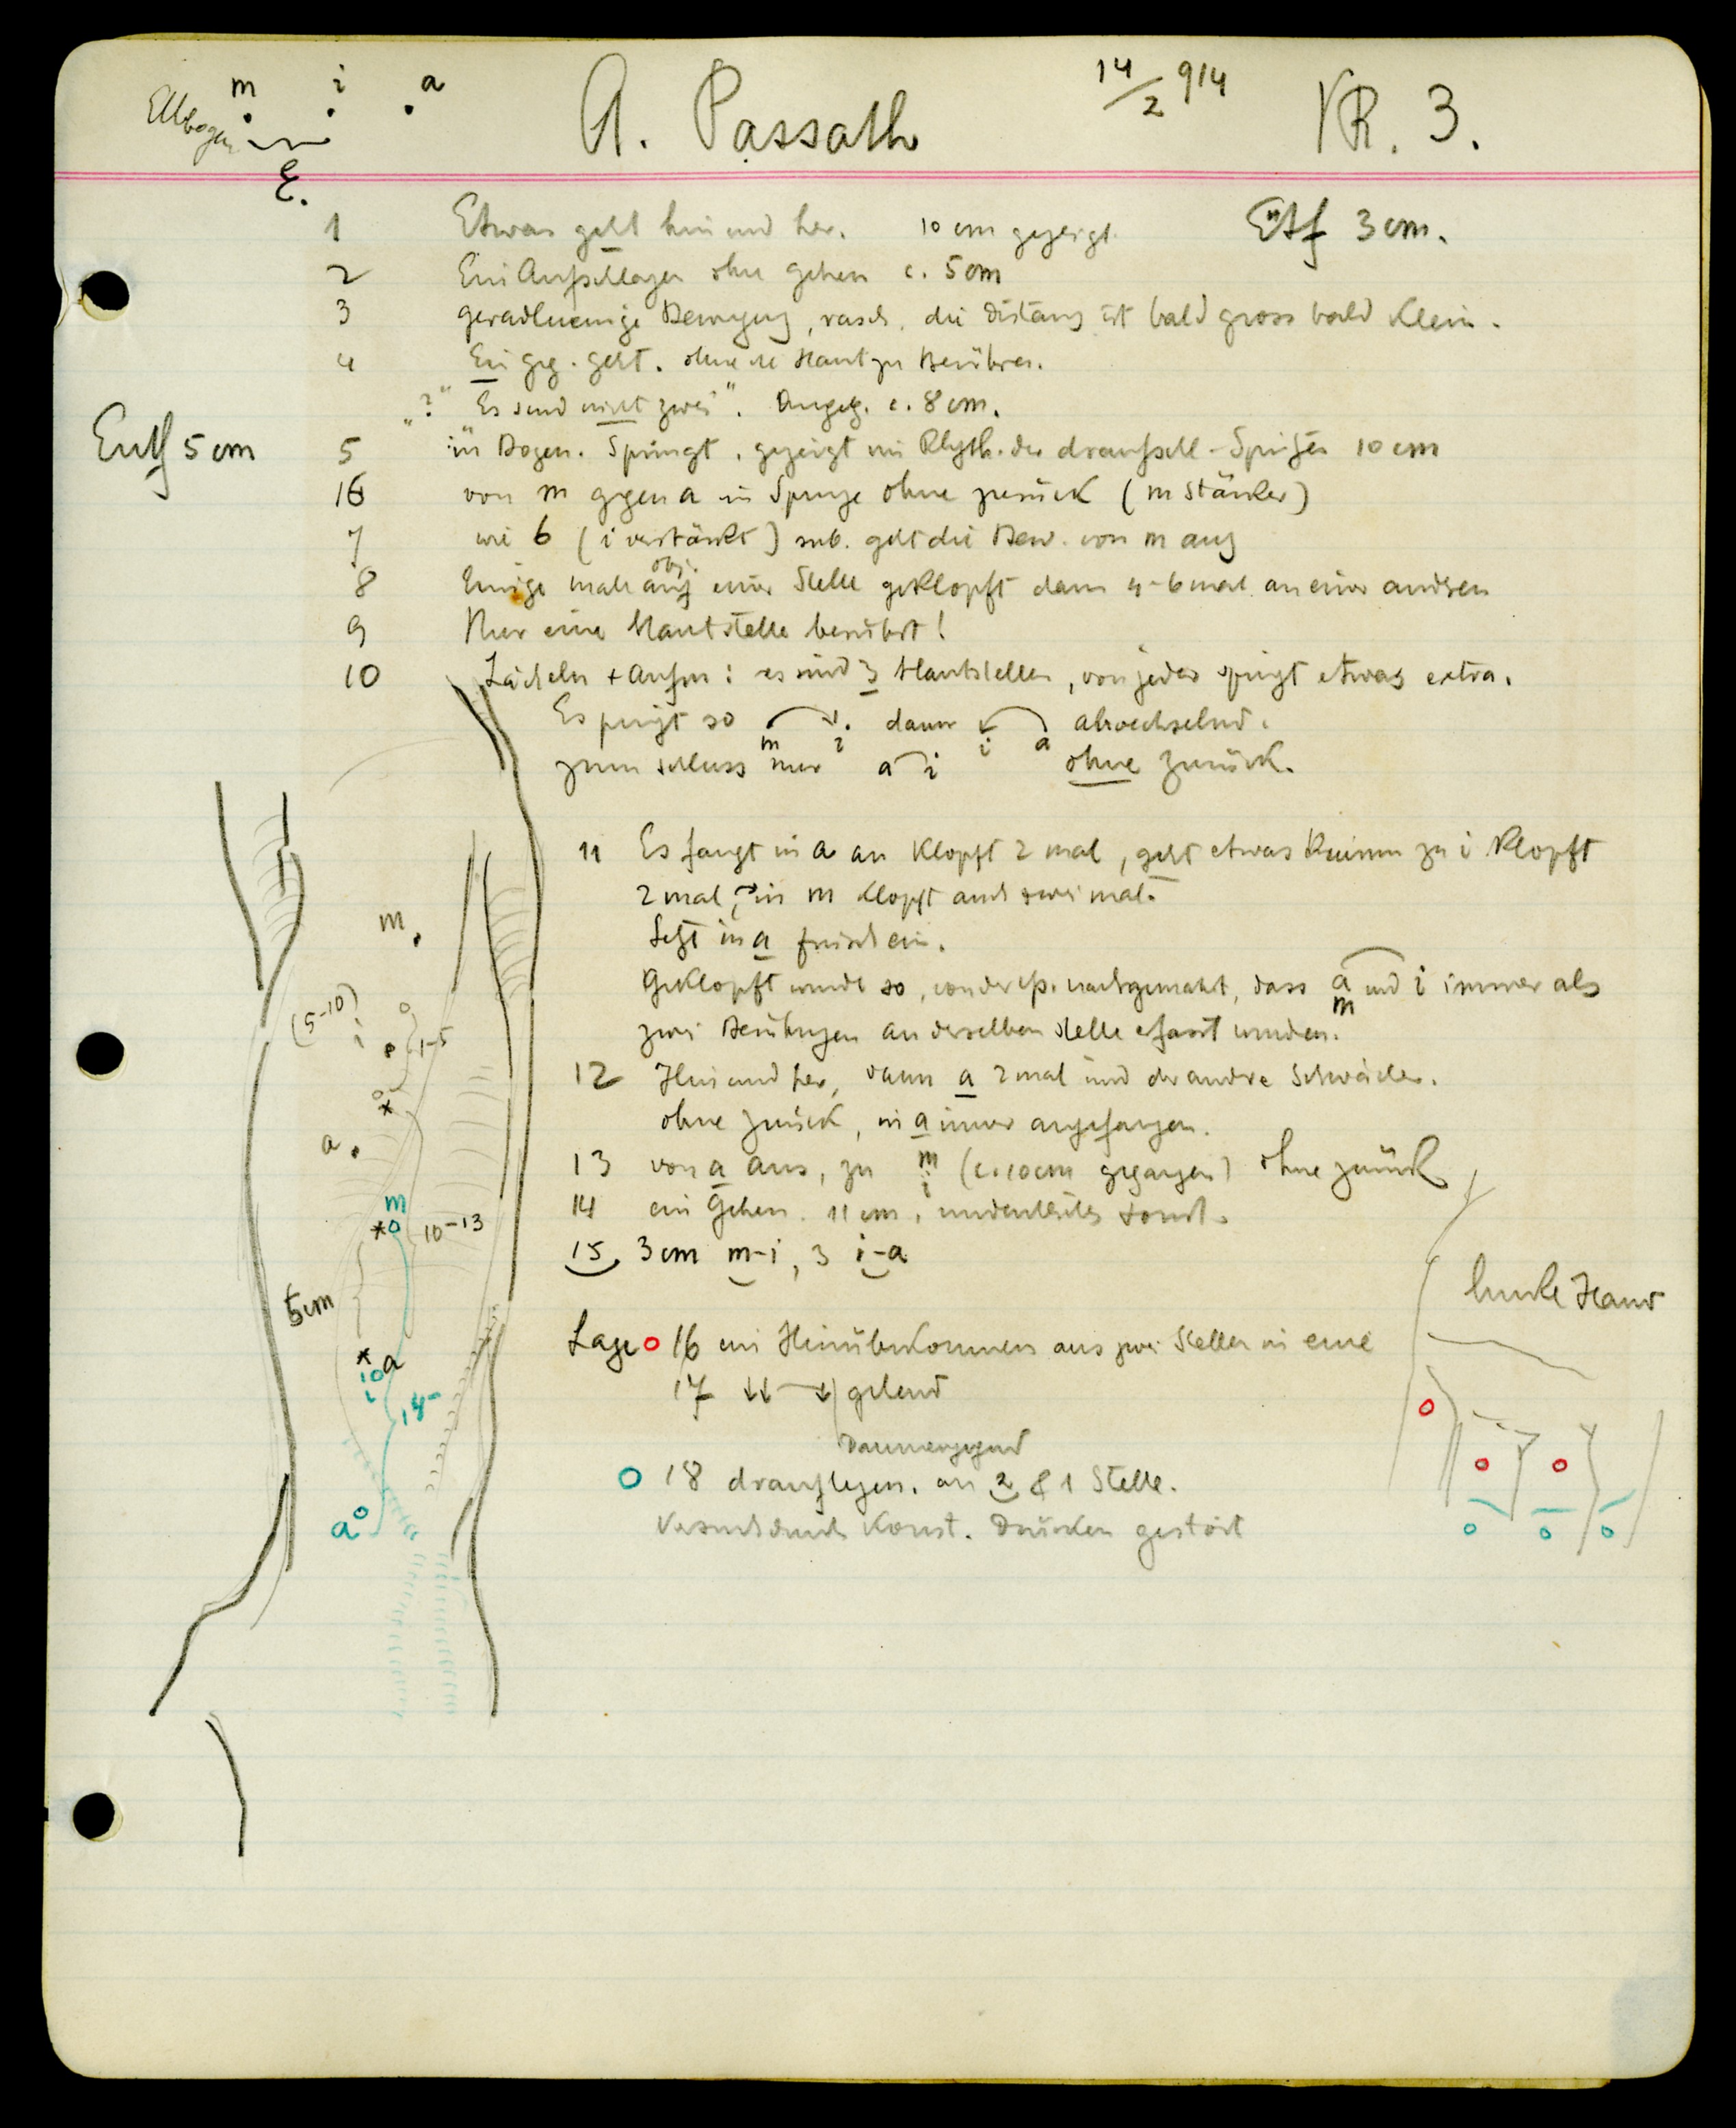 m i a
Ellbogen
E.
A. Passath 14/2 914 VR. 3.
1 Etwas geht hin und her. 10 cm gezeigt. Entf 3 cm.
2 Ein Aufschlagen ohne gehen c. 5 cm
3 geradlienige Bewegung, rasch, die Distanz ist bald gross bald klein.
4 Ein geg. geht. ohne die Haut zu Berühren.
"?" Es sind nicht zwei". Angeg. c. 8 cm.
Entf 5 cm
5 in Bogen. Springt, gezeigt im Rhyth. der 10 cm
16 von m gegen a in Sprunge ohne zurück (m stärker)
7 wie 6 (i verstärkt) sub. geht die Bew. von m aus
8 Einige male auf obj. einer Stelle geklopft dann 4-6 mal an einer andren
9 Nur eine Hautstelle berührt!
10 Lächeln + : es sind 3 Hautstellen, von jeder springt etwas extra.
Es springt so m i. dann i a abwechselnd.
zum schluss nur a i ohne zurück.
11 Es fangt in a an klopft 2 mal, geht etwas zu i klopft
2 mal, in m klopft auch zwei mal.
Setzt in a frisch ein.
Geklopft wurde so, von der Vp. nachgemacht, dass a und i immer als
m
zwei Berührungen an derselben stelle erfasst wurden.
12 Hin und her, dann a 2 mal und der andre Schwächer.
ohne zurück, in a immer angefangen.
13 von a aus, zu m i (c. 10 cm gegangen) ohne zurück
14 ein Gehen. 11 cm, undeutliches sonst.
15 3 cm m-i, 3 i-a
Lage o 16 ein Hinüberkommen aus zwei Stellen in eine
17 ↓↓ → ↓ gehend
Daumengegend
o 18 drauflegen. an 2 & 1 Stelle.
Versuch durch Konst. Drücken gestört
linke Hand
m
(5-10)
i
1-5
a
m
10-13
5cm
a
i
14-
a